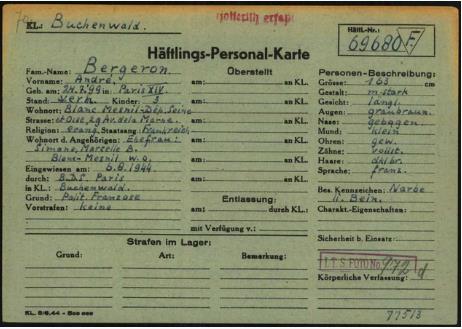 KL.: Buchenwald.
Hollerith erfaßt
Häftl.-Nr.:
69680 F.
Häftlings-Personal-Karte
Fam.-Name: Bergeron
Vorname: André
Geb. am: 24.7.99 in: Paris XIV
Stand: Verh. Kinder: 3
Wohnort: Blanc Mesnil-Dép. Seine
Strasse: et Oise, 29 Av. de la Marne.
Religion: evang. Staatsang.: Frankreich
Wohnort d. Angehörigen: Ehefrau:
Simone, Marcelle B.
Blanc-Mesnil w.o.
Eingewiesen am: 6.8.1944
durch: B.D.S. Paris
in KL.: Buchenwald.
Grund: Polit. Franzose
Vorstrafen: keine
Überstellt
am: an KL.
am: an KL.
am: an KL.
am: an KL.
am: an KL.
am: an KL.
Entlassung:
am: durch KL.:
mit Verfügung v.:
Personen-Beschreibung:
Grösse: 163 cm
Gestalt: m-stark
Gesicht: längl.
Augen: graubraun.
Nase: gebogen.
Mund: klein
Ohren: gew.
Zähne: vollst.
Haare: dklbr.
Sprache: franz.
Bes. Kennzeichen: Narbe
Bein.
Charakt.-Eigenschaften:
Sicherheit b. Einsatz:
I.T.S. FOTO No. 972 d
Körperliche Verfassung:
Strafen im Lager:
Grund: Art: Bemerkung:
KL. 5/6.44
77513